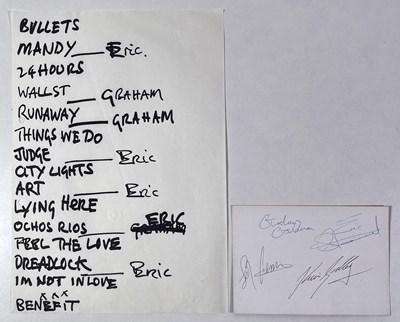 BULLETS
MANDY — Eric.
24 HOURS
WALL ST — GRAHAM
RUNAWAY — GRAHAM
THINGS WE DO
JUDGE — Eric
CITY LIGHTS
ART — Eric
LYING HERE
OCHOS RIOS — GRAHAM ERIC
FEEL THE LOVE
DREADLOCK — Eric
IM NOT IN LOVE
x x x
BENEFIT
Graham Gouldman
Eric
Kevin Godley